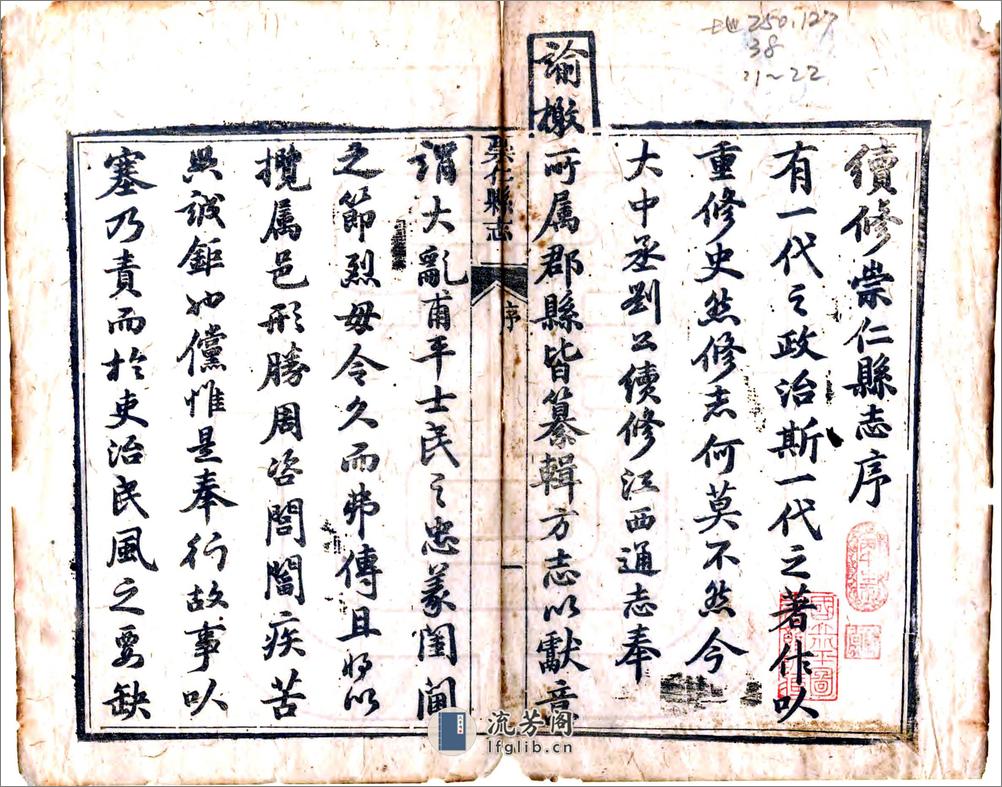 地250.127
38
21～22
續修崇仁縣志序
有一代之政治斯一代之著作以
重修史然修志何莫不然今
大中丞劉公續修江西通志奉
諭檄所属郡縣皆纂輯方志以獻意
崇仁縣志
序
一
謂大亂甫平士民之忠義閨閫
之節烈毋令久而弗傳且将以
攬属邑形勝周咨閭閻疾苦
典誠鉅也儻惟是奉行故事以
塞乃責而於吏治民風之要缺
流芳阁
lfglib.cn